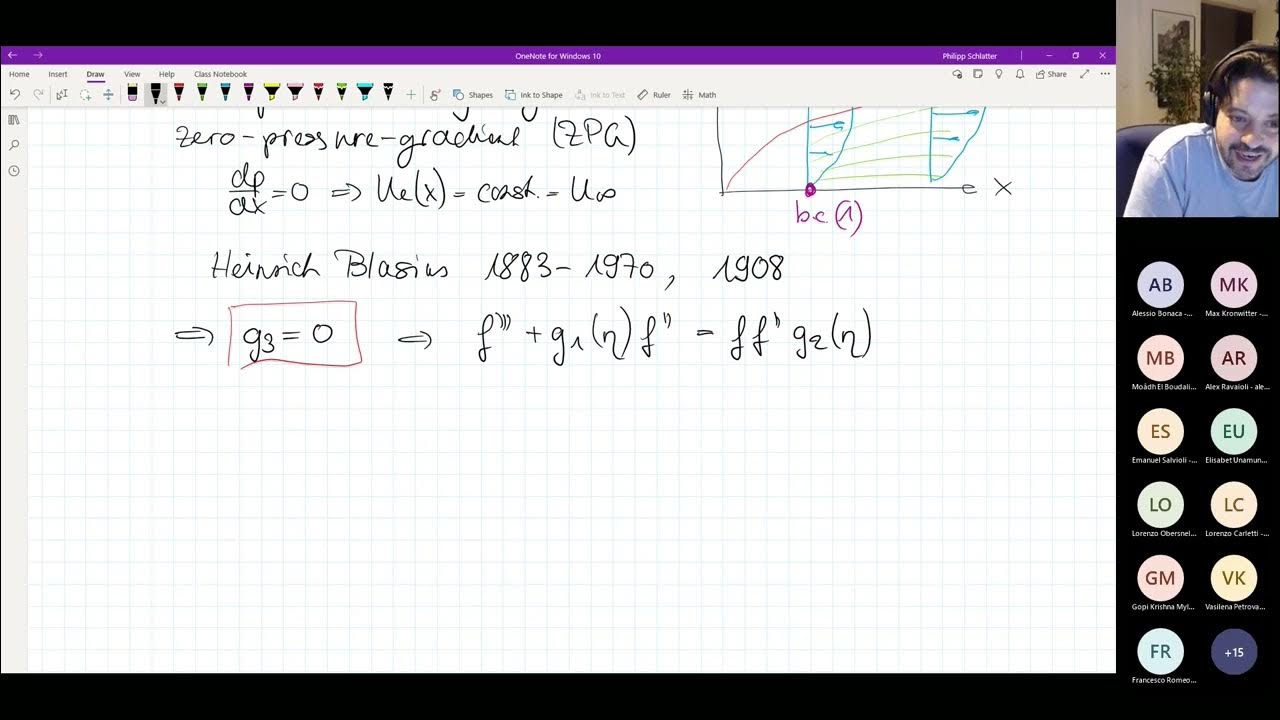 OneNote for Windows 10
Philipp Schlatter
Home Insert Draw View Help Class Notebook
Share
Shapes Ink to Shape Ink to Text Ruler Math
zero-pressure-gradient (ZPG)
dp/dx = 0 ⇒ Ue(x) = const. = U∞
x
b.c. (1)
Heinrich Blasius 1883 - 1970, 1908
⇒ g₃ = 0 ⇒ f''' + g₁(η) f'' = f f' g₂(η)
AB MK
Alessio Bonaca -... Max Kronwitter -...
MB AR
Moådh El Boudali... Alex Ravaioli - ale...
ES EU
Emanuel Salvioli -... Elisabet Unamun...
LO LC
Lorenzo Obersnel... Lorenzo Carletti -...
GM VK
Gopi Krishna Myl... Vasilena Petrova...
FR +15
Francesco Romeo...